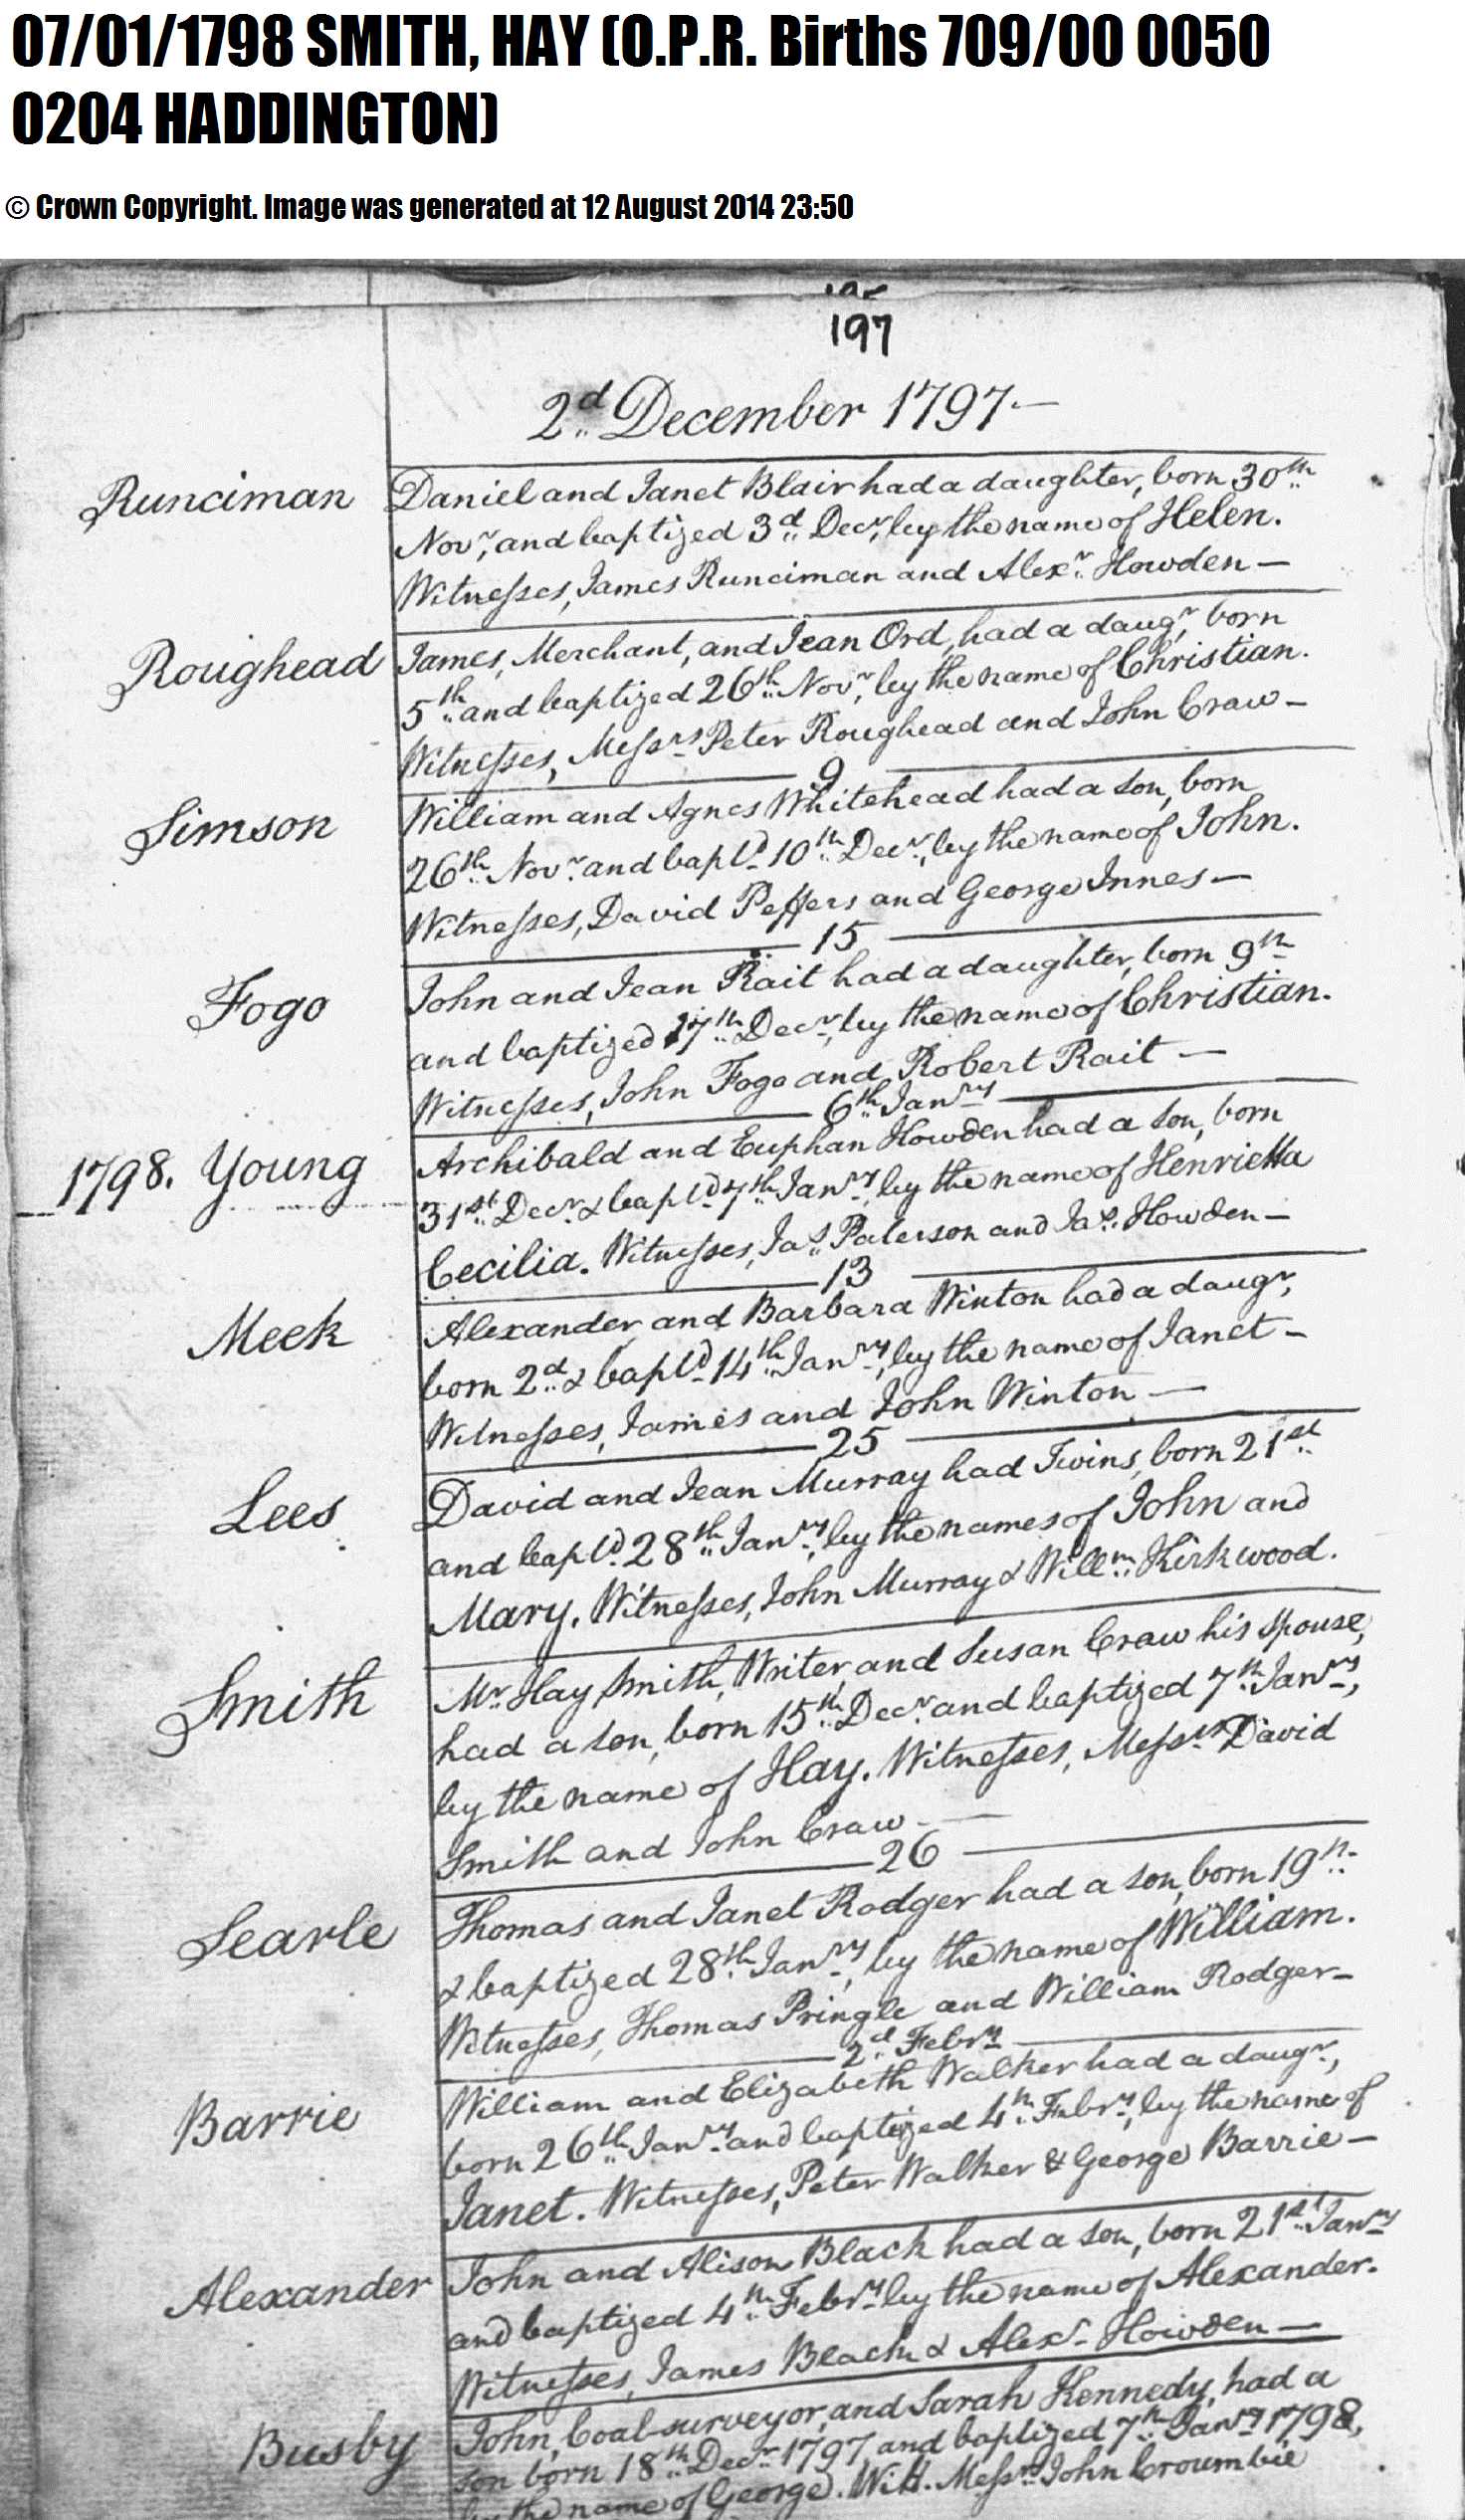 07/01/1798 SMITH, HAY (O.P.R. Births 709/00 0050
0204 HADDINGTON)
© Crown Copyright. Image was generated at 12 August 2014 23:50
197
2d December 1797—
Runciman Daniel and Janet Blair had a daughter, born 30th
Novr, and baptized 3d Decr, by the name of Helen.
Witnesses, James Runciman and Alexr Howden—
Roughead James, Merchant, and Jean Ord, had a daugr, born
5th and baptized 26th Novr, by the name of Christian.
Witnesses, Messrs Peter Roughead and John Craw—
9
Simson William and Agnes Whitehead had a son, born
26th Novr and bapt'd 10th Decr, by the name of John.
Witnesses, David Peffers and George Innes—
15
Fogo John and Jean Rait had a daughter, born 9th
and baptized 17th Decr, by the name of Christian.
Witnesses, John Fogo and Robert Rait—
6th Janry
1798. Young Archibald and Euphan Howden had a son, born
31st Decr & bapt'd 7th Janry, by the name of Henrietta
Cecilia. Witnesses, Jas Paterson and Jas Howden—
13
Meek Alexander and Barbara Winton had a daugr,
born 2d & bapt'd 14th Janry, by the name of Janet—
Witnesses, James and John Winton—
25
Lees David and Jean Murray had Twins, born 21st
and bapt'd 28th Janry, by the names of John and
Mary. Witnesses, John Murray & Willm Kirkwood.
Smith Mr Hay Smith, Writer, and Susan Craw his spouse,
had a son, born 15th Decr and baptized 7th Janry,
by the name of Hay. Witnesses, Messrs David
Smith and John Craw—
26
Searle Thomas and Janet Rodger had a son, born 19th
& baptized 28th Janry, by the name of William.
Witnesses, Thomas Pringle and William Rodger—
2d Febry
Barrie William and Elizabeth Walker had a daugr,
born 26th Janry and baptized 4th Febry, by the name of
Janet. Witnesses, Peter Walker & George Barrie—
Alexander John and Alison Black had a son, born 21st Janry
and baptized 4th Febry by the name of Alexander.
Witnesses, James Black & Alexr Howden—
Busby John, Coal-surveyor, and Sarah Kennedy, had a
son born 18th Decr 1797, and baptized 7th Janry 1798,
by the name of George. Witt. Messrs John Croumbie